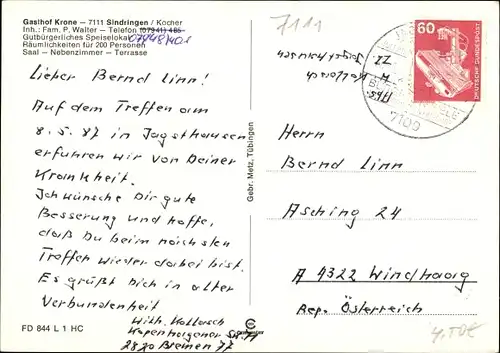 Gasthof Krone – 7111 Sindringen / Kocher
Inh.: Fam. P. Walter – Telefon (07941) 485
07948/401
Gutbürgerliches Speiselokal
Räumlichkeiten für 200 Personen
Saal – Nebenzimmer – Terrasse
Lieber Bernd Linn!
Auf dem Treffen am
8.5.87 in Jagsthausen
erfuhren wir von Deiner
Krankheit.
Ich wünsche Dir gute
Besserung und hoffe,
daß Du beim nächsten
Treffen wieder dabei bist.
Es grüßt Dich in alter
Verbundenheit
Wilh. Kollorsch
Kopenhagener Str. 11
2820 Bremen 77
FD 844 L 1 HC
Gebr. Metz, Tübingen
7111
60
DEUTSCHE BUNDESPOST
7109
Abs.
W. Kollorsch
Jagsthausen
Herrn
Bernd Linn
Asching 24
A 4322 Windhaag
Rep. Österreich